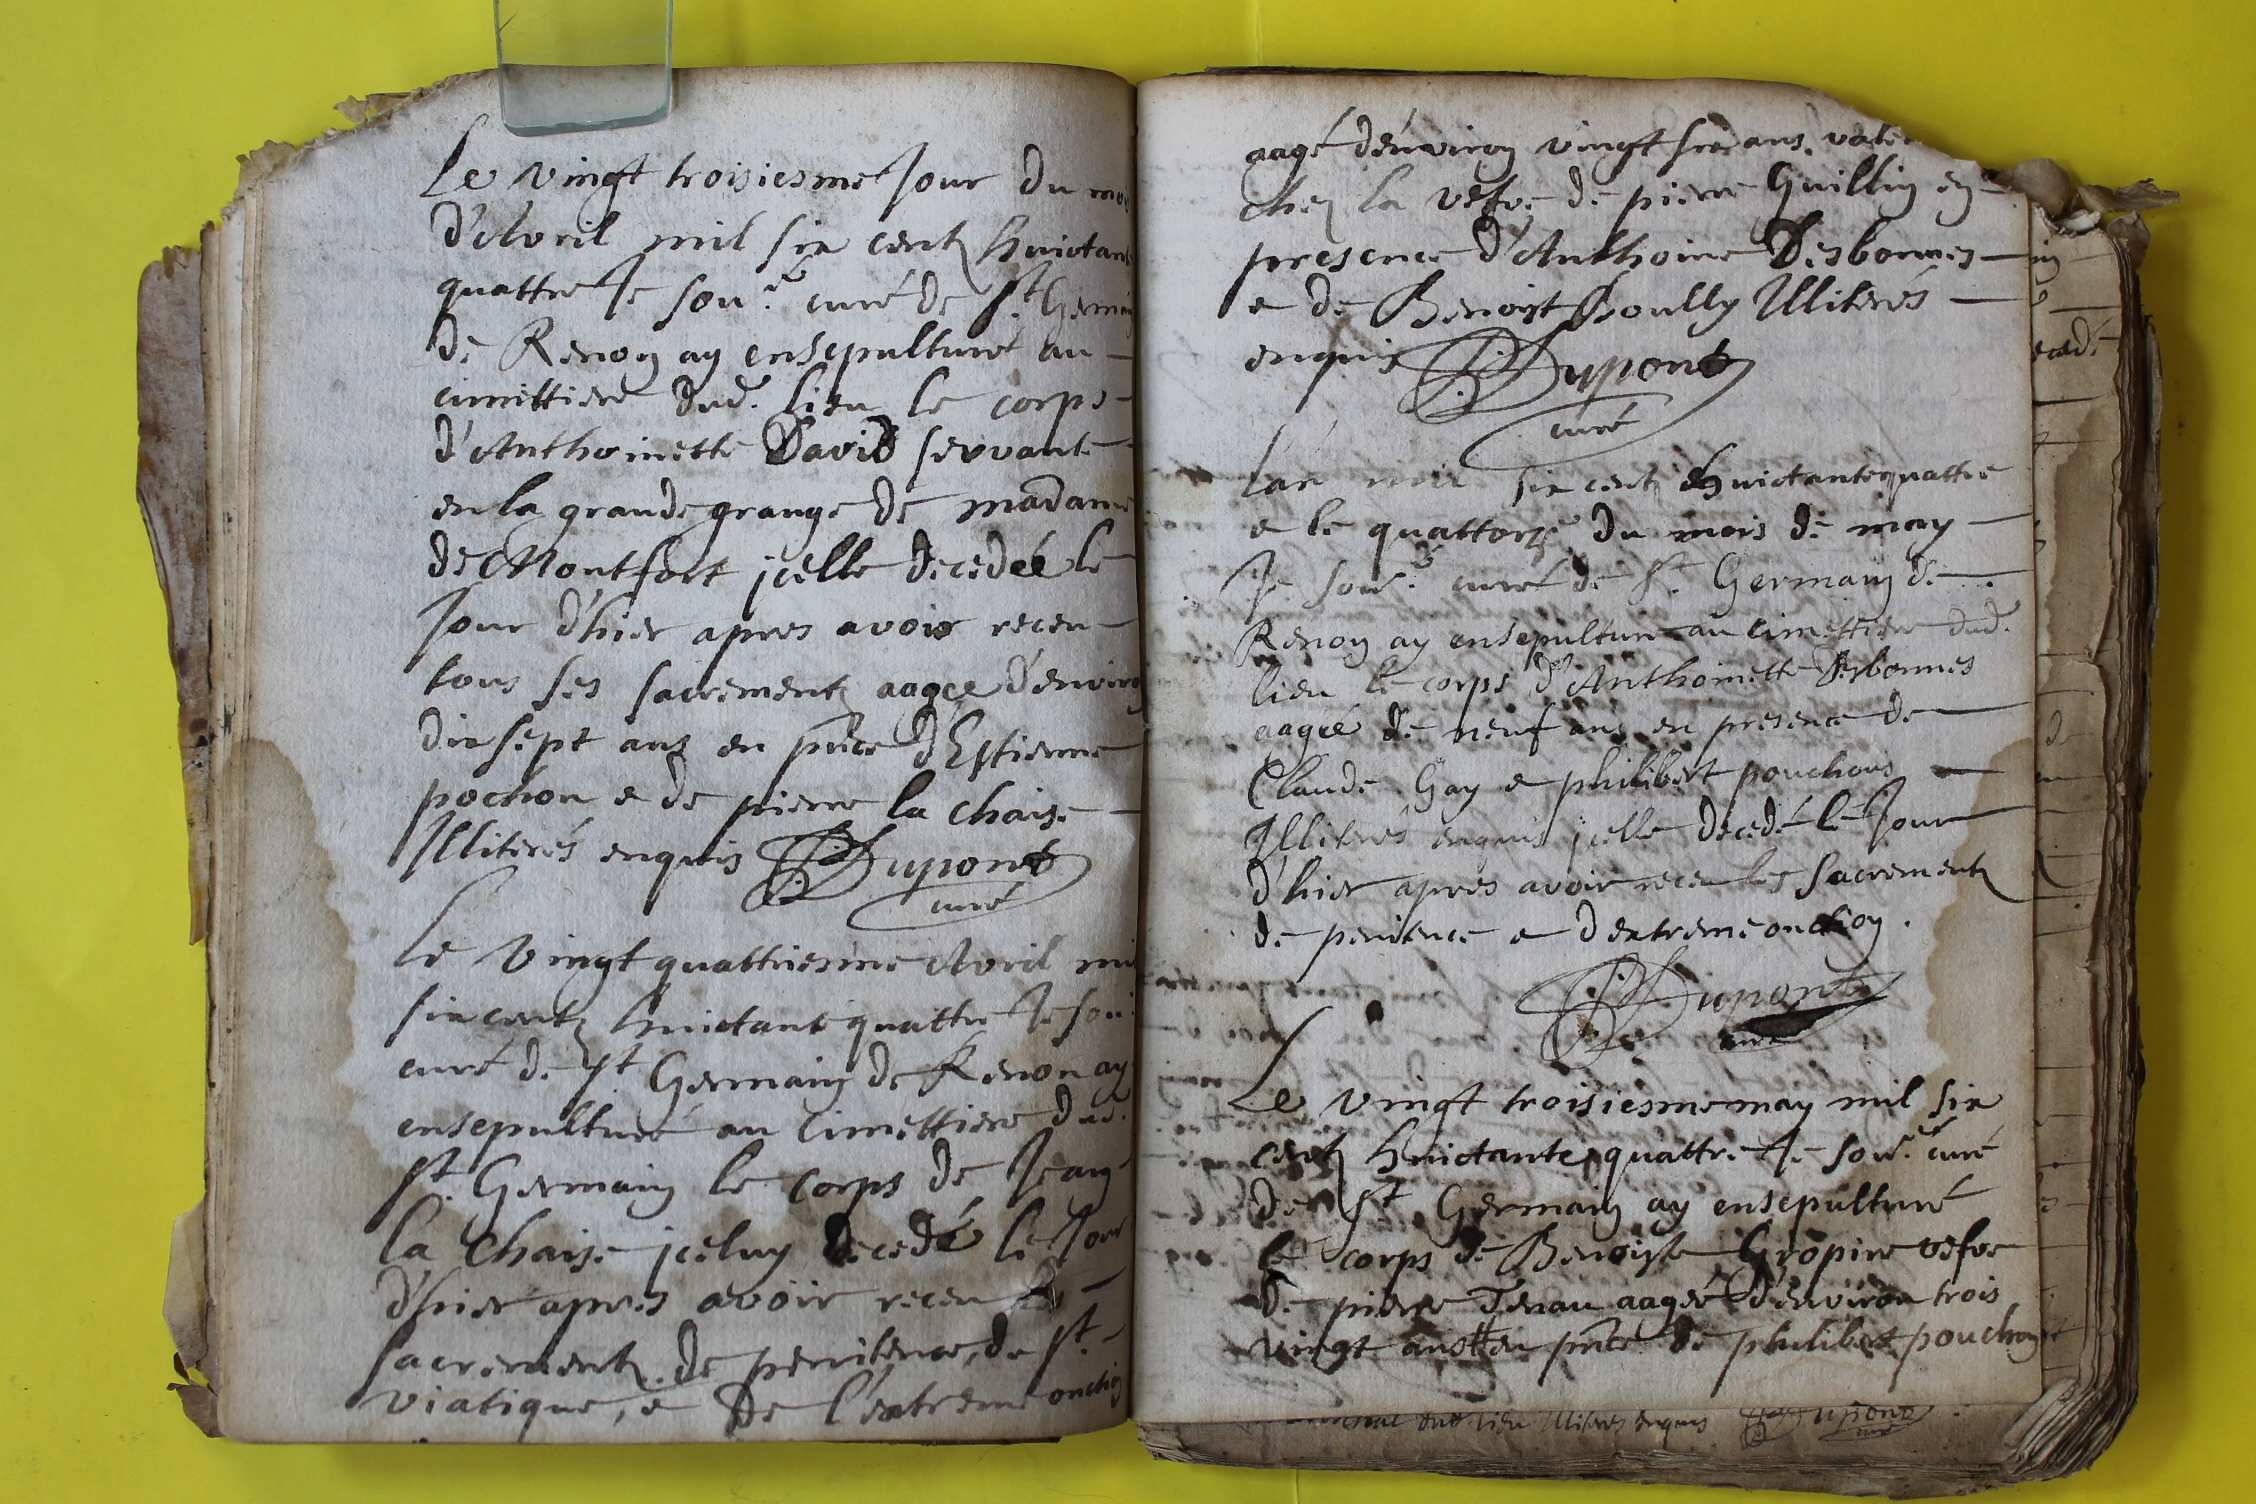 Le vingt troisiesme Jour du mois
d'Avril mil six centz huictante
quattre Je sou.é curé de St Germain
de Renon ay ensepulturé au
cimittiere dud. lieu le corps
d'Anthoinette David servante
en la grande grange de madame
de Montfort jcelle decedéé le
Jour d'hier apres avoir receu
tous ses sacrementz aagee d'environ
dix sept ans en pnce d'Estienne
pochon e de pierre la chaise
Illiterés enquis Dupont
curé
Le vingt quattriesme Avril mil
six centz huictante quattre Je sou.
curé de St Germain de Renon ay
ensepulturé au cimettiere dud.
St Germain le corps de Jean
la chaise jceluy decedé le Jour
d'hier apres avoir receu les
sacrementz de penitence, de St
viatique, e de l'extreme onction
aagé d'environ vingt six ans. valet
chez la vefve de pierre Guillin en
presence d'Anthoine Desbonnes
e de Benoist Boully Illiterés
enquis Dupont
curé
Lan mil six centz huictante quattre
e le quattorze du mois de may
Je sou.é curé de St Germain de
Renon ay ensepulturé au cimettiere dud.
lieu le corps d'Anthoinette Desbonnes
aagéé de neuf ans en presence de
Claude Gay e philibert pouchons
Illiterés enquis jcelle decedé le Jour
d'hier apres avoir receu les sacrementz
de penitence e d'extreme onction.
Dupont
curé
Le vingt troisiesme may mil six
centz huictante quattre Je sou.é curé
de St Germain ay ensepulturé
le corps de Benoiste Gropire vefve
de pierre Tenau aagéé d'environ trois
vingt ans en pnce de philibert pouchon
dud. lieu Illiteres enquis Dupont
curé